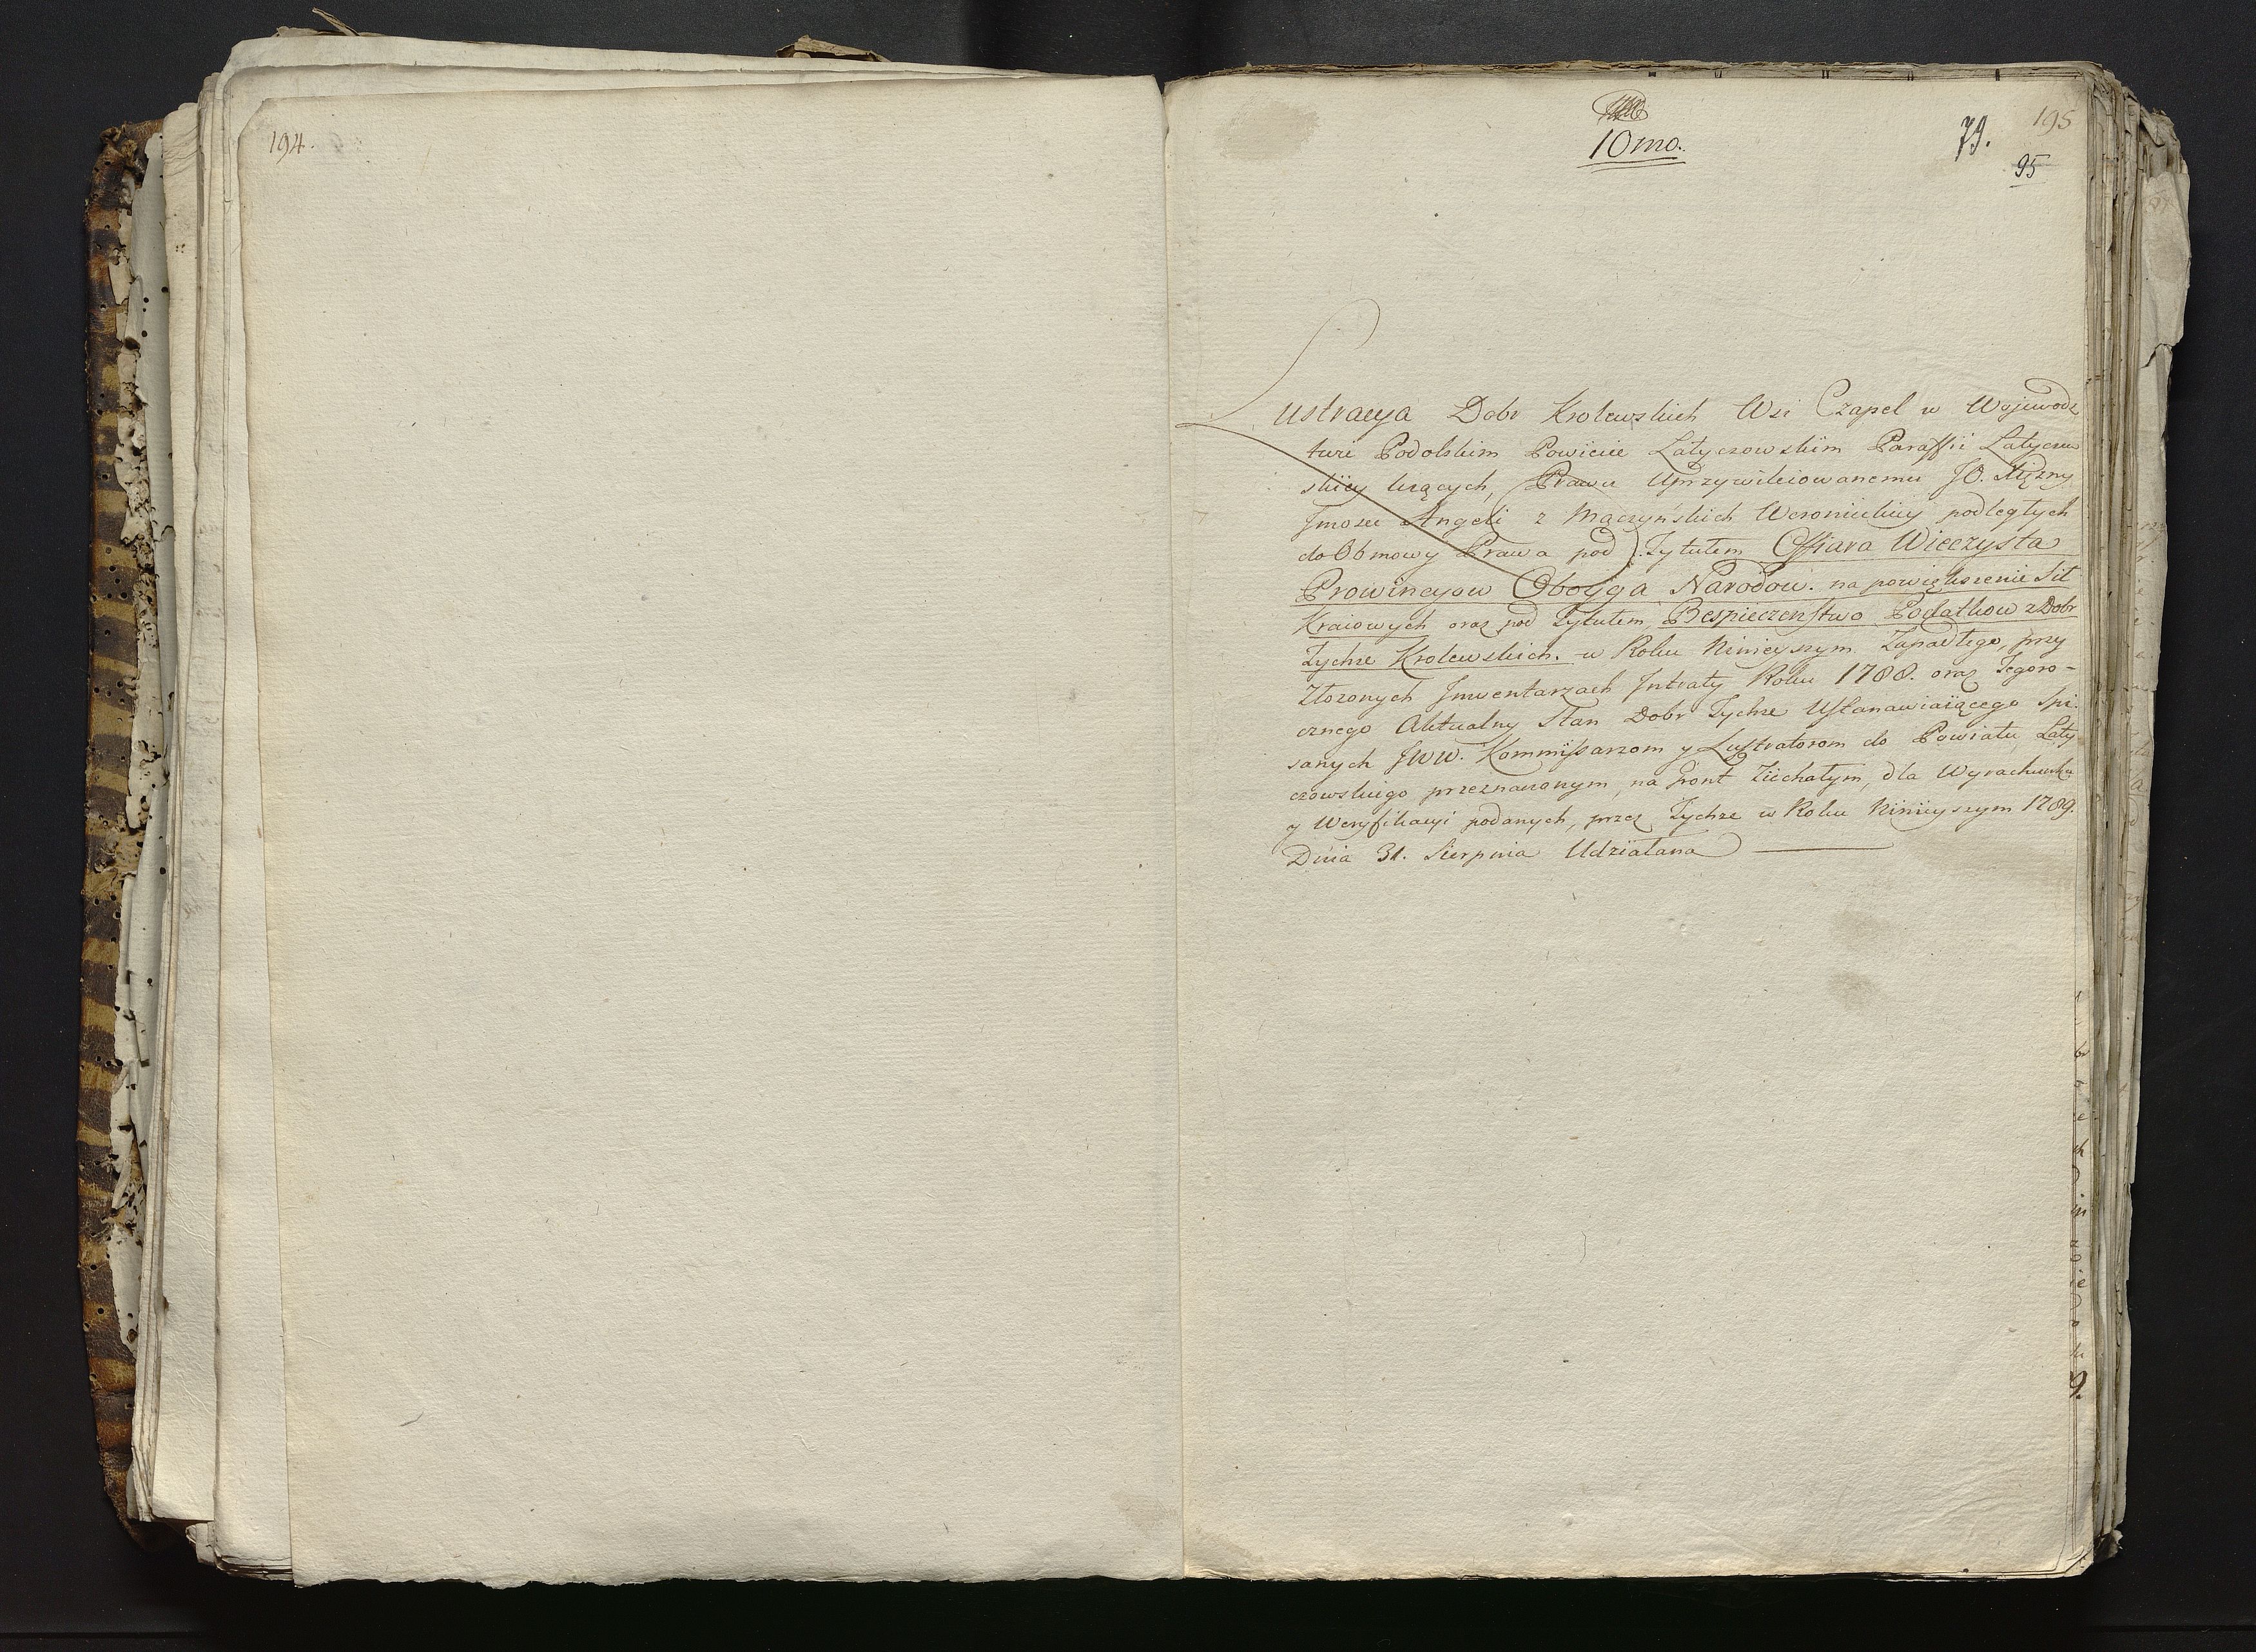 194.
10mo.
79.
195
95
Lustracya Dobr Krolewskich Wsi Czapel w Wojewodz
twie Podolskim Powiecie Latyczowskim Paraffii Latyczew
skiey leżących, Prawu Uprzywileiowanemu JO. Xiężny
Jmosci Angeli z Mączyńskich Woronieckiey podległych
do Obmowy Prawa pod Tytułem Offiara Wieczysta
Prowincyow Oboyga Narodow. na powiększenie Sił
Kraiowych oraz pod Tytułem, Bespieczenstwo Podatkow z Dobr
Tychże Krolewskich. w Roku Ninieyszym Zapadłego, przy
Złożonych Jnwentarzach Jntraty Roku 1788. oraz Tegoro-
cznego Aktualny Stan Dobr Tychże Ustanawiaiącego Spi-
sanych JWW. Kommissarzom y Lustratorom do Powiatu Laty
czowskiego przeznaczonym, na Gront Ziechałym, dla Wyrachunku
y Weryfikacyi podanych, przez Tychże w Roku Ninieyszym 1789.
Dnia 31. Sierpnia Udziałana